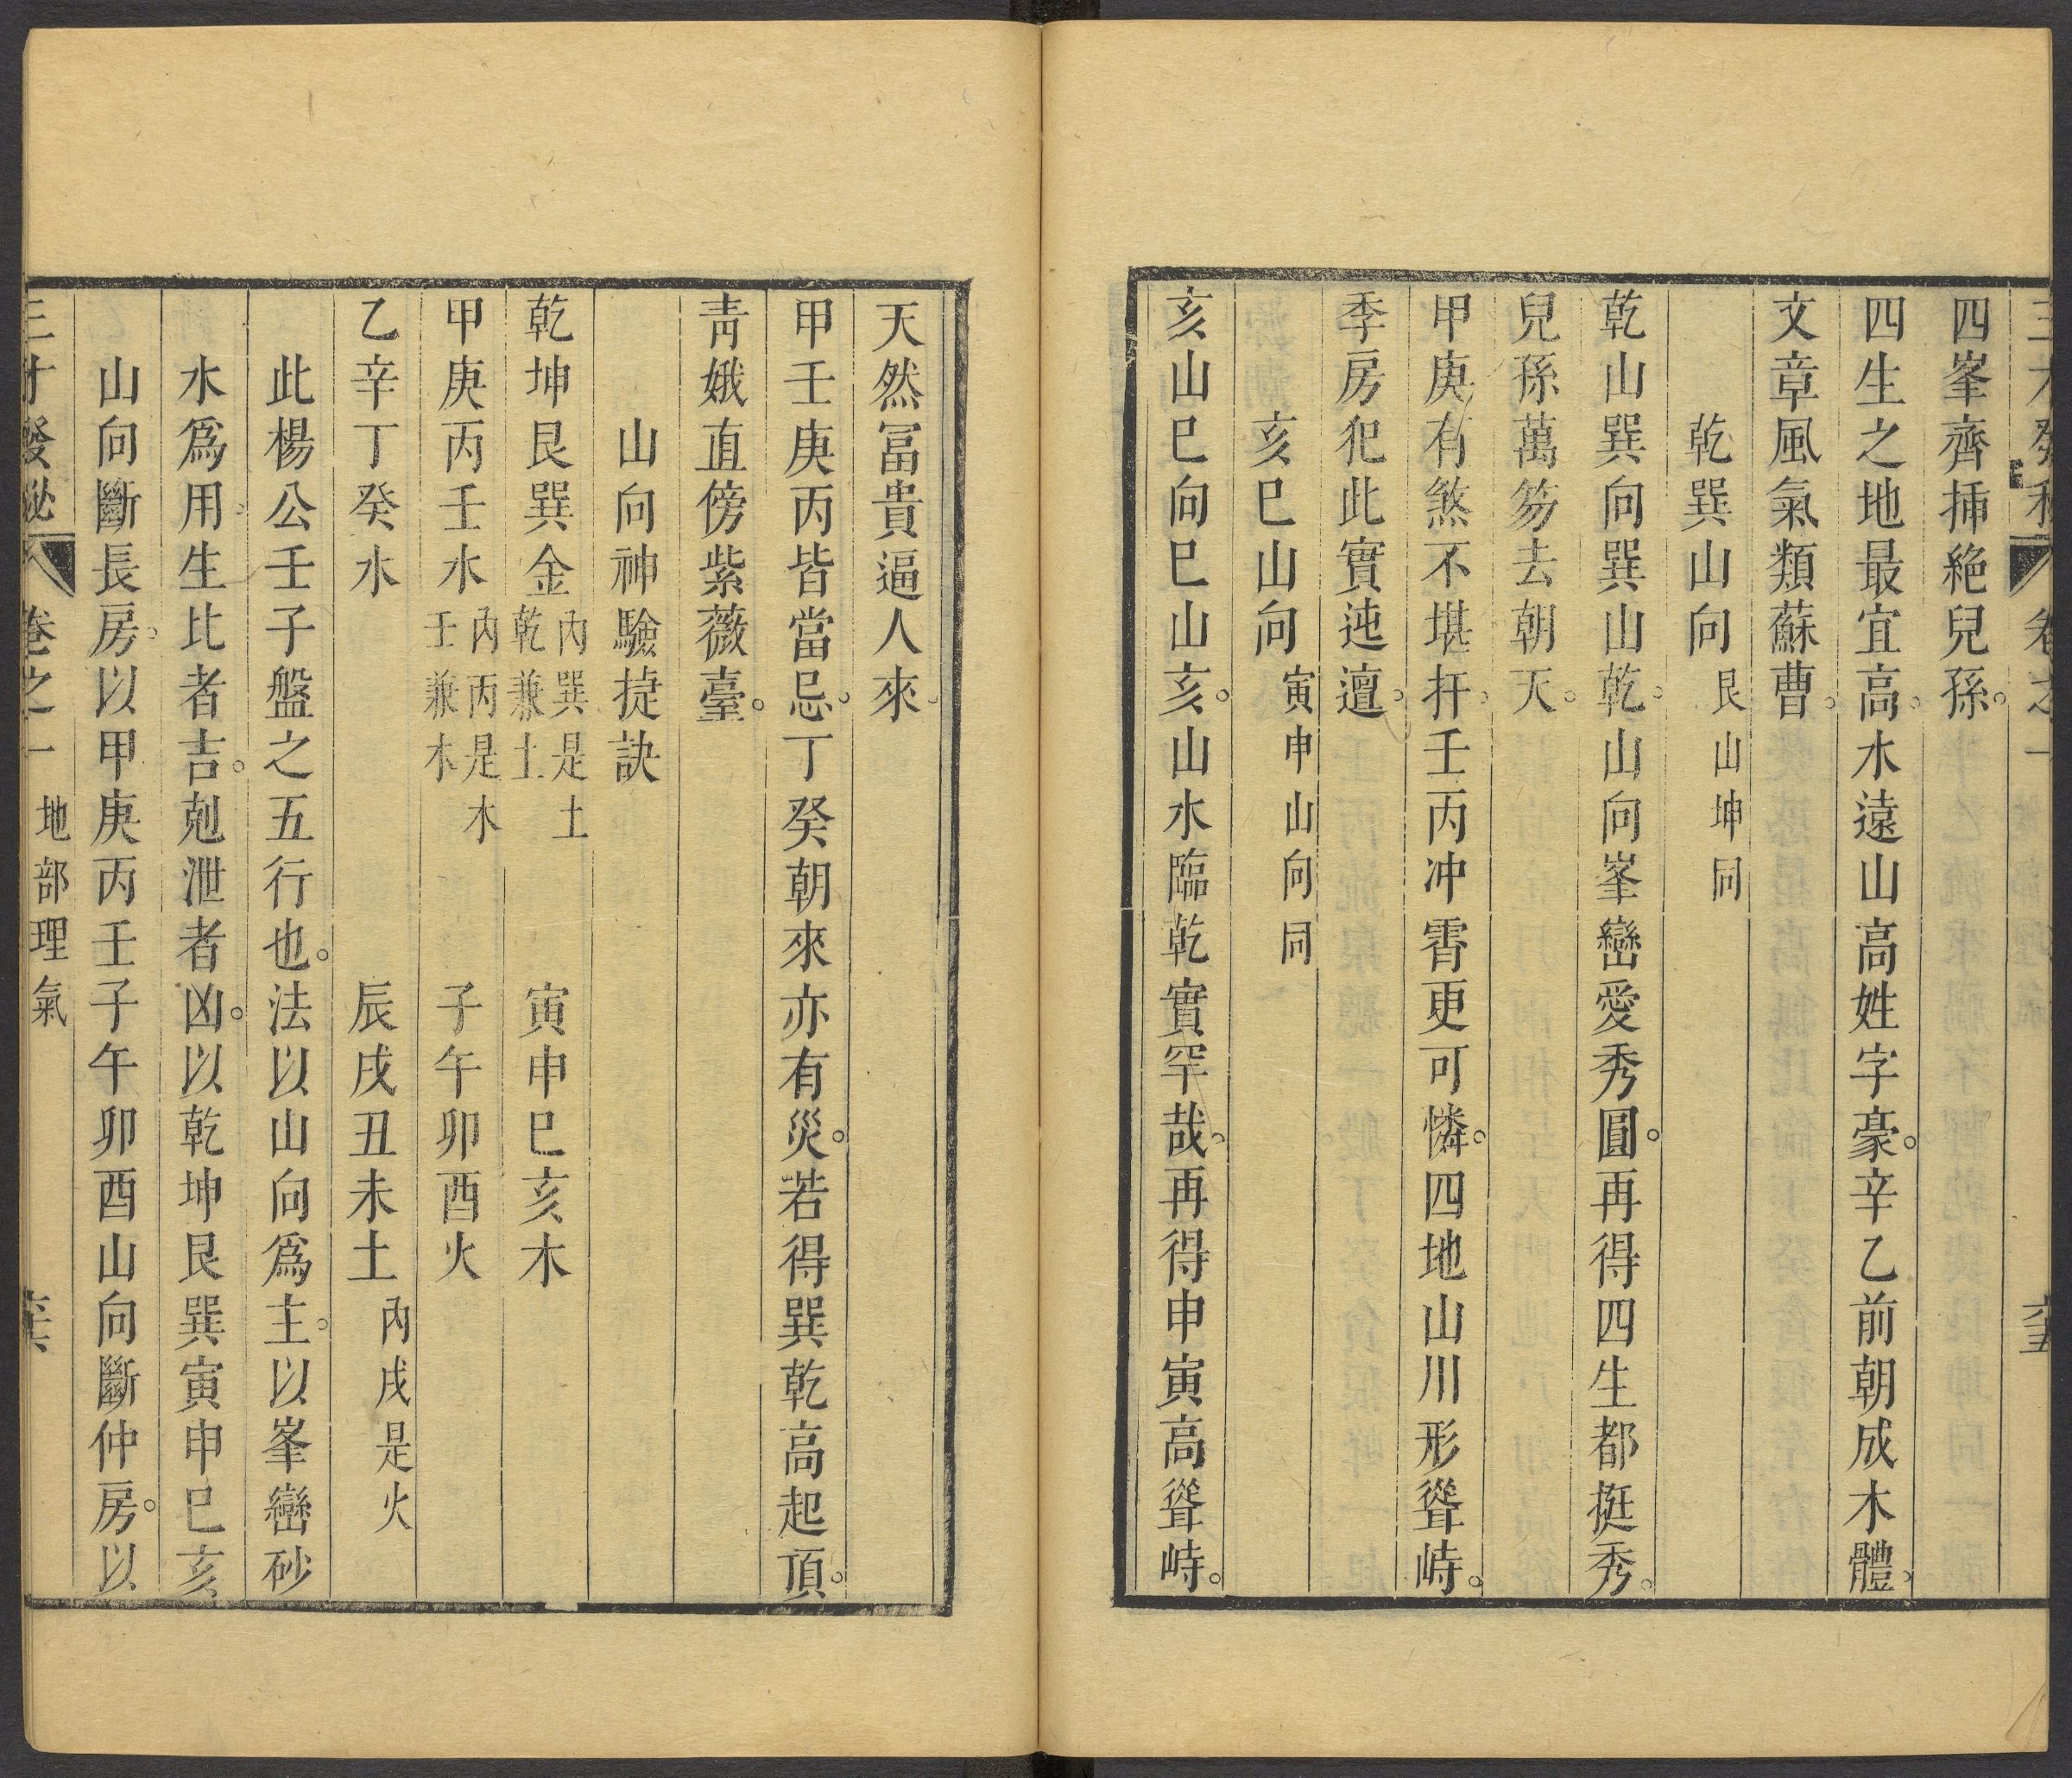 四峯齊揷絶兒孫。
四生之地最宜高。水遠山高姓字豪。辛乙前朝成木體。
文章風氣類蘇曹。
乾巽山向 艮山坤同
乾山巽向巽山乾。山向峯巒愛秀圓。再得四生都挺秀。
兒孫萬笏去朝天。
甲庚有煞不堪扦。壬丙冲霄更可憐。四地山川形聳峙。
季房犯此實迍邅。
亥巳山向 寅申山向同
亥山巳向巳山亥。山水臨乾實罕哉。再得申寅高聳峙。
天然冨貴逼人來。
甲壬庚丙皆當忌。丁癸朝來亦有災。若得巽乾高起頂。
靑娥直傍紫薇臺。
山向神驗捷訣
乾坤艮巽金 內巽是土乾兼土 寅申巳亥木
甲庚丙壬水 內丙是木壬兼木 子午卯酉火
乙辛丁癸水 辰戌丑未土 內戌是火
此楊公壬子盤之五行也。法以山向爲主。以峯巒砂
水爲用。生比者吉。剋泄者凶。以乾坤艮巽寅申巳亥
山向斷長房。以甲庚丙壬子午卯酉山向斷仲房。以
三才發秘 卷之一 地部理氣